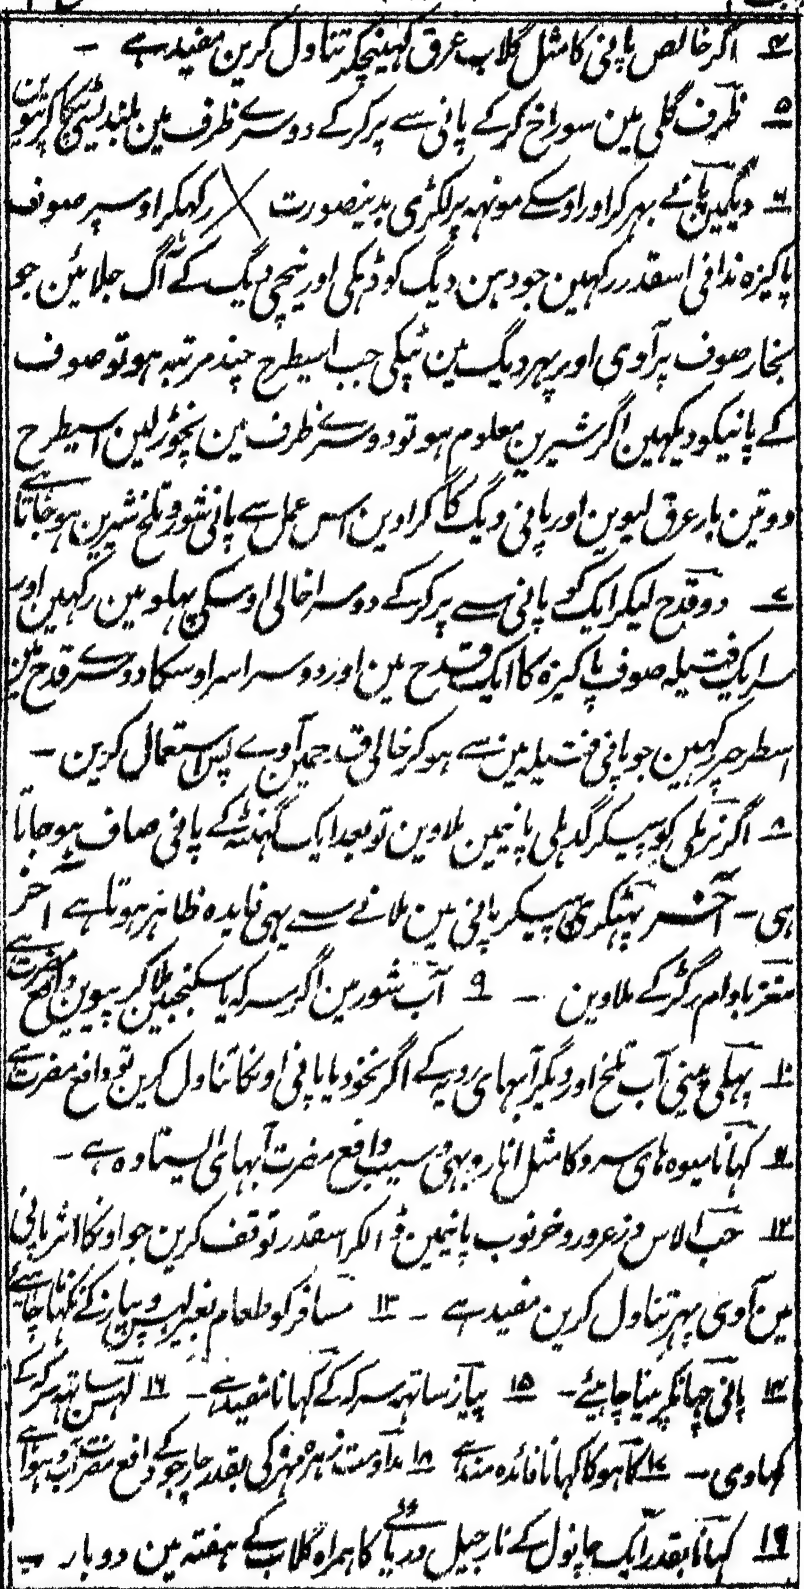 ۴ اگر خالص پانی کا مثل گلاب عرق کہینچکر تناول کرین مفید ہے ۔
۵ ظرف گلی مین سوراخ کرکے پانی سے پر کرکے دوسرے ظرف مین بلندیسے ٹپکا کر پیوین
۶ دیگمین پانی بہر کر اور اوسکے مونہہ پر لکڑی بدینصورت ╳ رکہکر اوسپر صوف
پاکیزہ ندافی اسقدر رکہین جو دہن دیگ کو ڈہکی اور نیچی دیگ کے آگ جلائین جو
بخار صوف پر آوی اور پہر دیگ مین ٹپکی جب اسیطرح چند مرتبہ ہو تو صوف
کے پانیکو دیکہین اگر شیرین معلوم ہو تو دوسرے ظرف مین نچوڑ لین اسیطرح
دو تین بار عرق لیوین اور پانی دیگ کا گرادین اس عمل سے پانی شور و تلخ شیرین ہو جاتا ہے
۷ دو قدح لیکر ایک کو پانی سے پر کرکے دوسرا خالی اوسکی پہلو مین رکہین اور
سرا یک فتیلہ صوف پاکیزہ کا ایک قدح مین اور دوسرا سرا اوسکا دوسرے قدح مین
اسطرحپر رکہین جو پانی فتیلہ مین سے ہو کر خالی قدحمین آوے پس استعمال کرین ۔
۸ اگر نرملی کو پیسکر گدلی پانیمین ملاوین تو بعد ایک گہنٹہ کے پانی صاف ہو جاتا
ہی ۔ آخر پہٹکری پیسکر پانی مین ملانے سے یہی فایدہ ظاہر ہوتا ہے آخر
مغز بادام رگڑ کے ملاوین ۔ ۹ آب شور مین اگر سرکہ یا سکنجبین ملا کر پیوین دافع مضرت ہے
۱۰ پہلی پینی آب تلخ اور دیگر آبہای ردیہ کے اگر نخود یا پانی اونکا تناول کرین تو دافع مضرت ہے
۱۱ کہانا میوہ ہای سرد کا مثل انار و بہی و سیب دافع مضرت آبہای ایستادہ ہے ۔
۱۲ حب الاس و زعرور و خرنوب پانیمین ڈالکر اسقدر توقف کرین جو اونکا اثر پانی
مین آوی پہر تناول کرین مفید ہے ۔ ۱۳ مسافر کو طعام بغیر لہسن و پیاز کے نکہانا چاہئے
۱۴ پانی چہانکر پینا چاہئے ۔ ۱۵ پیاز ساتہہ سرکہ کے کہانا مفید ہے ۔ ۱۶ لہسن ساتہہ سرکہ کے
کہاوی ۔ ۱۷ کاہو کا کہانا فائدہ مند ہے ۱۸ مداومت زہر مہرہ کی بقدر چار جو کے دافع مضرت آب و ہوا ہے
۱۹ کہانا بقدر ایک چانول کے نارجیل دریائے کا ہمراہ گلاب کے ہفتہ مین دوبار ۔